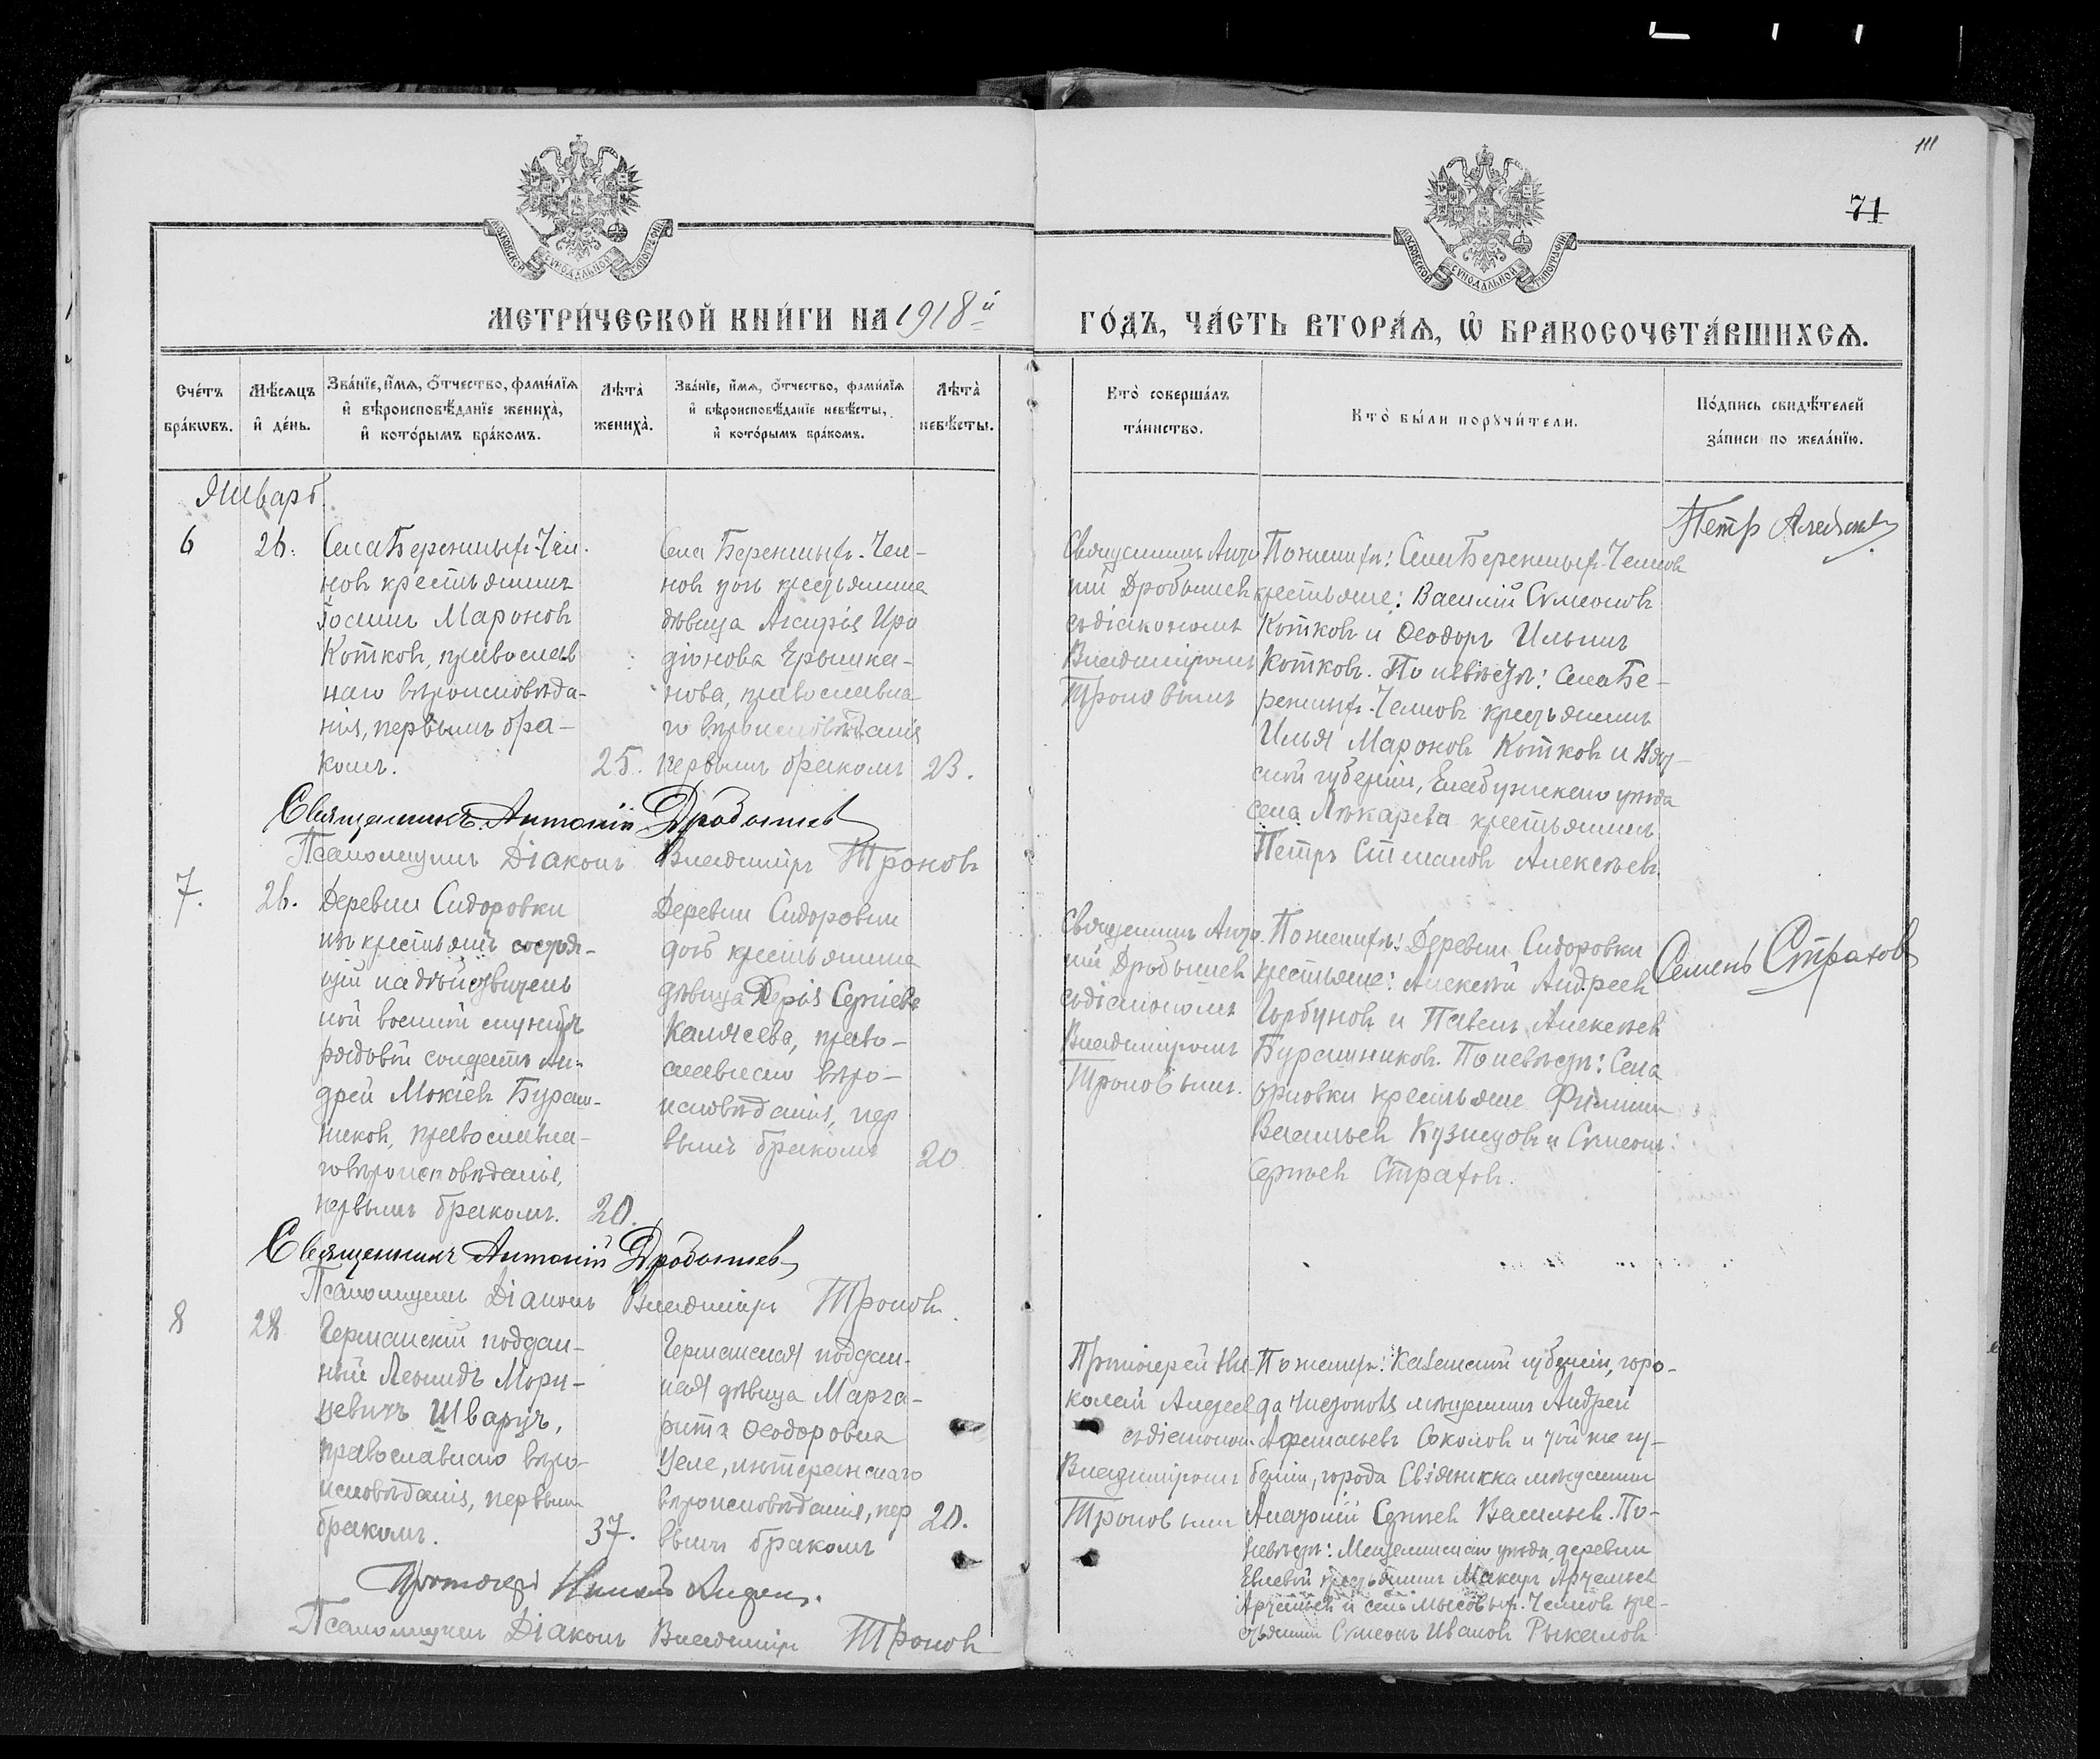 111
71
МОСКОВСКОЙ СѴНОДАЛЬНОЙ ТИПОГРАФІИ
МОСКОВСКОЙ СѴНОДАЛЬНОЙ ТИПОГРАФІИ
МЕТРИ́ЧЕСКОЙ КНИ́ГИ НА 1918й
ГО́ДЪ, ЧА́СТЬ ВТОРА́Я, Ѡ҆ БРАКОСОЧЕТА́ВШИХСЯ.
Сче́тъ
бра́кѡвъ.
Мѣ́сяцъ
и҆ де́нь.
Зва́нїе, и҆́мя, ѻ҆́тчество, фами́лїя
и҆ вѣроисповѣ́данїе жениха̀,
и҆ кото́рымъ бра́комъ.
Лѣ́та̀
жениха̀.
Зва́нїе, и҆́мя, ѻ҆́тчество, фами́лїя
и҆ вѣроисповѣ́данїе невѣ́сты,
и҆ кото́рымъ бра́комъ.
Лѣ́та̀
невѣ́сты.
Кто̀ соверша́лъ
та́инство.
Кто̀ бы́ли порꙋчи́тели.
По́дпись свидѣ́телей
за́писи по жела́нїю.
Январь
6
26.
Села Бережныхъ-Чел-
новъ крестьянинъ
Іосифъ Мароновъ
Котковъ, православ
наго вѣроисповѣда-
нія, первымъ бра-
комъ.
25.
Села Бережныхъ-Чел-
новъ дочь крестьянина
дѣвица
діонова
нова, православна
го вѣроисповѣданія
первымъ бракомъ
23.
Священникъ Анто
ній Дробышев
съ діакономъ
Владиміромъ
Троновымъ
По женихѣ: Села Бережныхъ-Челновъ
крестьяне: Василій Сѵмеоновъ
Котковъ и Ѳеодоръ Ильинъ
Котковъ. По невѣстѣ: Села Бе-
режныхъ-Челновъ крестьянинъ
Илья Мароновъ Котковъ и Вят-
ской губерніи, Елабужскаго уѣзда
села крестьянинъ
Петръ Алексѣевъ.
Петръ
Священникъ Антоній Дробышев
Псаломщикъ Діаконъ Владиміръ Троновъ
7.
26.
Деревни Сидоровки
изъ крестьянъ состоя-
щій на дѣйствитель
ной военной службѣ
рядовой солдатъ Ан-
дрей Мокіевъ Бураш-
никовъ, православна-
го вѣроисповѣданія,
первымъ бракомъ.
20.
Деревни Сидоровки
дочь крестьянина
дѣвица Сергіева
право-
славнаго вѣро-
исповѣданія, пер
вымъ бракомъ
20
Священникъ Анто
ній Дробышев
съ діакономъ
Владиміромъ
Троновымъ.
По женихѣ: Деревни Сидоровки
крестьяне: Алексѣй Андреев
Горбуновъ и Павелъ Алексѣев
Бурашниковъ. По невѣстѣ: Села
Орловки крестьяне Филиппъ
Васильевъ Кузнецовъ и Сѵмеонъ
Сергѣевъ Страховъ.
Семенъ Страховъ
Священникъ Антоній Дробышев
Псаломщикъ Діаконъ Владиміръ Троновъ
8
28
Германскій поддан-
ный Леонидъ Мори-
цевичъ Шварцъ,
православнаго вѣро-
исповѣданія, первымъ
бракомъ.
37.
Германская поддан-
ная дѣвица Марга-
рита Ѳеодоровна
лютеранскаго
вѣроисповѣданія, пер
вымъ бракомъ
20.
Протоіерей Ни-
колай
съ діакономъ
Владиміромъ
Троновымъ
По женихѣ: Казанской губерніи, горо-
да Чистополя мѣщанинъ Андрей
Афанасьевъ Соколовъ и той же гу-
берніи, города Свіяжска мѣщанинъ
Анатолій Сергѣев Васильев. По
невѣстѣ: Мензелинскаго уѣзда, деревни
крестьянинъ Макаръ
и села Мысовыхъ-Челновъ кре-
стьянинъ Сѵмеонъ Ивановъ
Протоіерей Николай
Псаломщикъ Діаконъ Владиміръ Троновъ